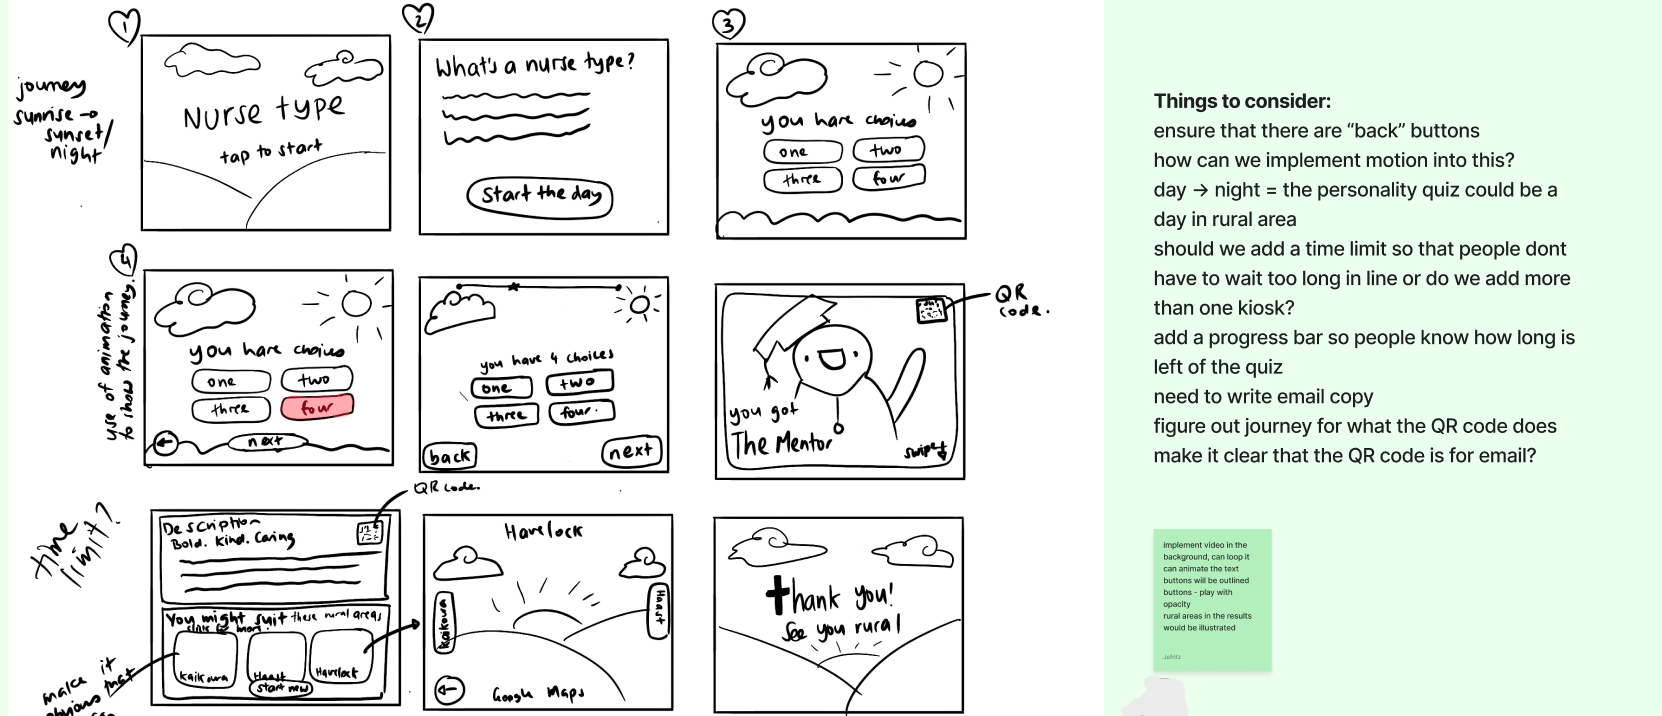 1
journey
sunrise →
sunset/
night
Nurse type
tap to start
2
What's a nurse type?
Start the day
3
you have choices
one
two
three
four
4
use of animation
to show the journey.
you have choices
one
two
three
four
←
next
you have 4 choices
one
two
three
four.
back
next
QR
code.
you got
The Mentor
swipe
time
limit?
QR code.
Description
Bold. Kind. Caring
You might suit these rural areas
Kaikoura
Haast
Havelock
start new
make it
obvious that
Havelock
Kaikoura
Haast
←
Google Maps
Thank you!
See you rural
Things to consider:
ensure that there are “back” buttons
how can we implement motion into this?
day → night = the personality quiz could be a
day in rural area
should we add a time limit so that people dont
have to wait too long in line or do we add more
than one kiosk?
add a progress bar so people know how long is
left of the quiz
need to write email copy
figure out journey for what the QR code does
make it clear that the QR code is for email?
implement video in the
background, can loop it
can animate the text
buttons will be outlined
buttons - play with
opacity
rural areas in the results
would be illustrated